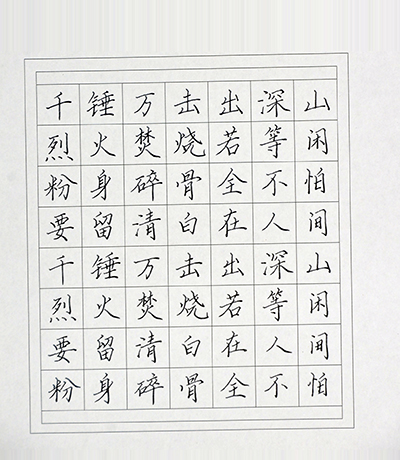 千锤万击出深山
烈火焚烧若等闲
粉身碎骨全不怕
要留清白在人间
千锤万击出深山
烈火焚烧若等闲
要留清白在人间
粉身碎骨全不怕